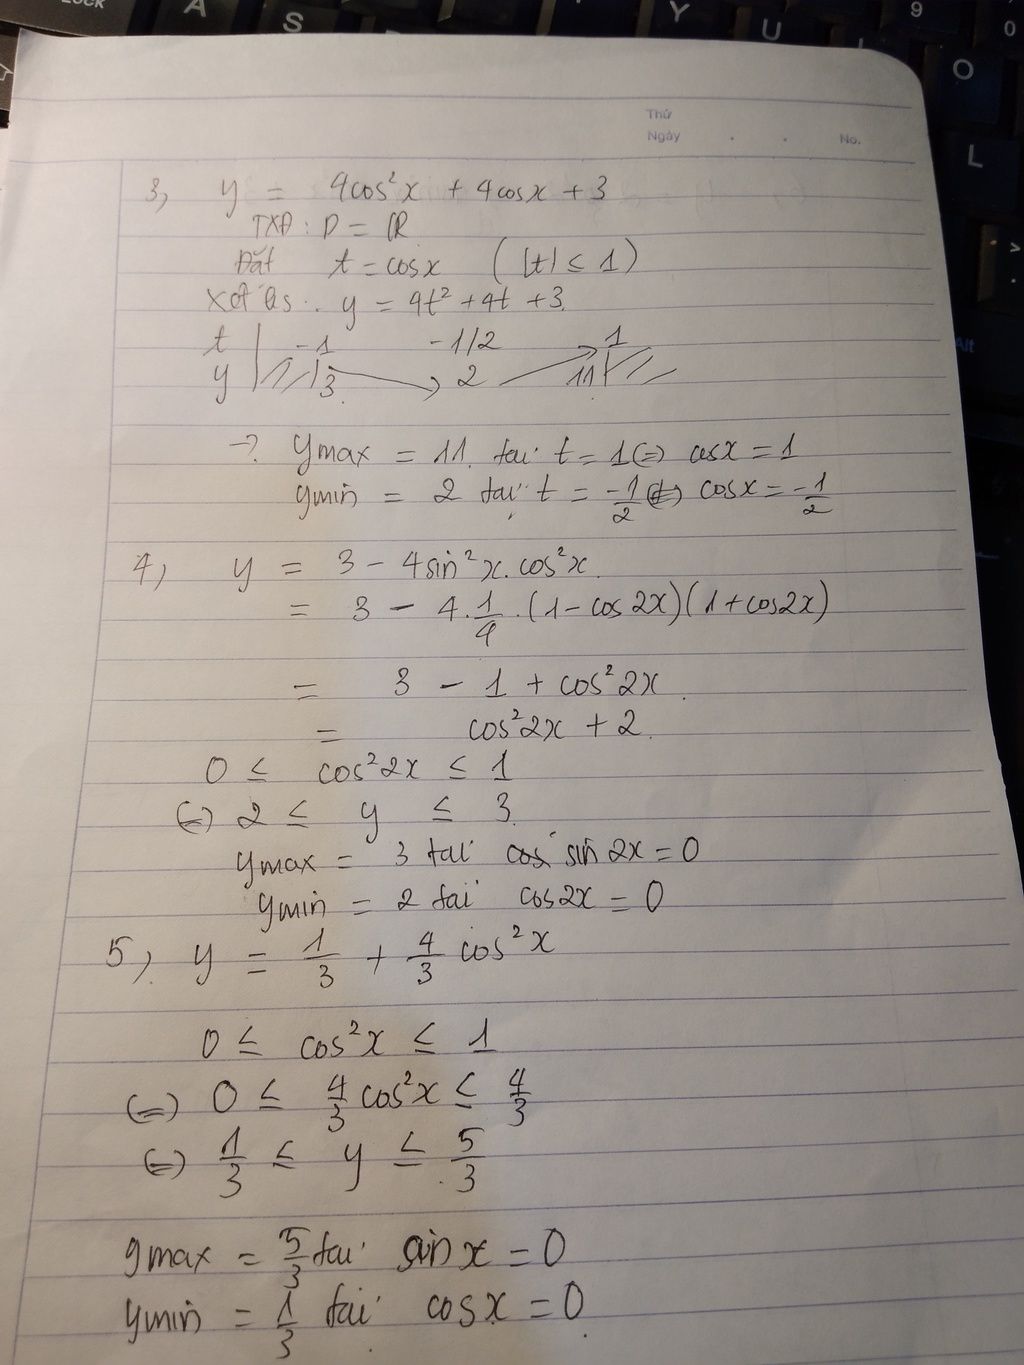 LOCK A S Y U 9 0
O
L
>
.
Alt
Thứ
Ngày . . No.
3, y = 4cos²x + 4cosx + 3
TXĐ: D = ℝ
Đặt t = cosx (|t| ≤ 1)
Xét hs. y = 4t² + 4t + 3
t -1 -1/2 1
y 3 2 11
→ ymax = 11 tại t = 1 (=) cosx = 1
ymin = 2 tại t = -1/2 (=) cosx = -1/2
4, y = 3 - 4sin²x.cos²x
= 3 - 4.1/4.(1-cos2x)(1+cos2x)
= 3 - 1 + cos²2x
= cos²2x + 2
0 ≤ cos²2x ≤ 1
(=) 2 ≤ y ≤ 3
ymax = 3 tại sin 2x = 0
ymin = 2 tại cos2x = 0
5, y = 1/3 + 4/3 cos²x
0 ≤ cos²x ≤ 1
(=) 0 ≤ 4/3 cos²x ≤ 4/3
(=) 1/3 ≤ y ≤ 5/3
ymax = 5/3 tại sinx = 0
ymin = 1/3 tại cosx = 0